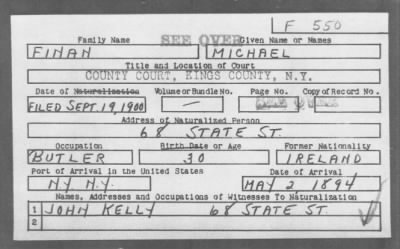 F 550
Family Name SEE OVER Given Name or Names
FINAN MICHAEL
Title and Location of Court
COUNTY COURT, KINGS COUNTY, N.Y.
Date of Naturalization Volume or Bundle No. Page No. Copy of Record No.
FILED SEPT. 19, 1900 — SEE OVER
Address of Naturalized Person
68 STATE ST.
Occupation Birth Date or Age Former Nationality
BUTLER 30 IRELAND
Port of Arrival in the United States Date of Arrival
N.Y. N.Y. MAY 2, 1894
Names, Addresses and Occupations of Witnesses To Naturalization
1 JOHN KELLY 68 STATE ST
2